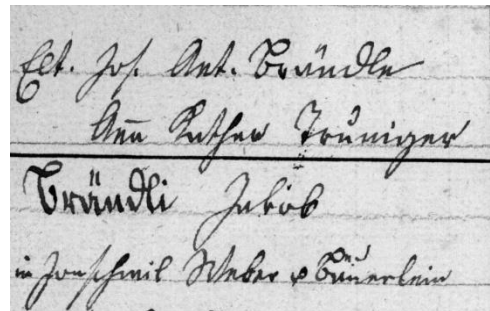 Elt. Jos. Ant. Brändle
Ann Kathar Truniger
Brändli Jakob
in Jonschwil Weber & Bäuerlein